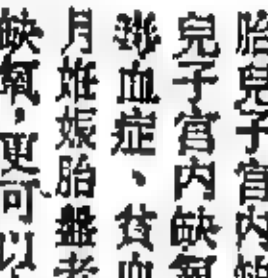 胎兒子宮內
兒子宮內缺氧
血症、貧血
月妊娠胎盤老
缺氧，更可以